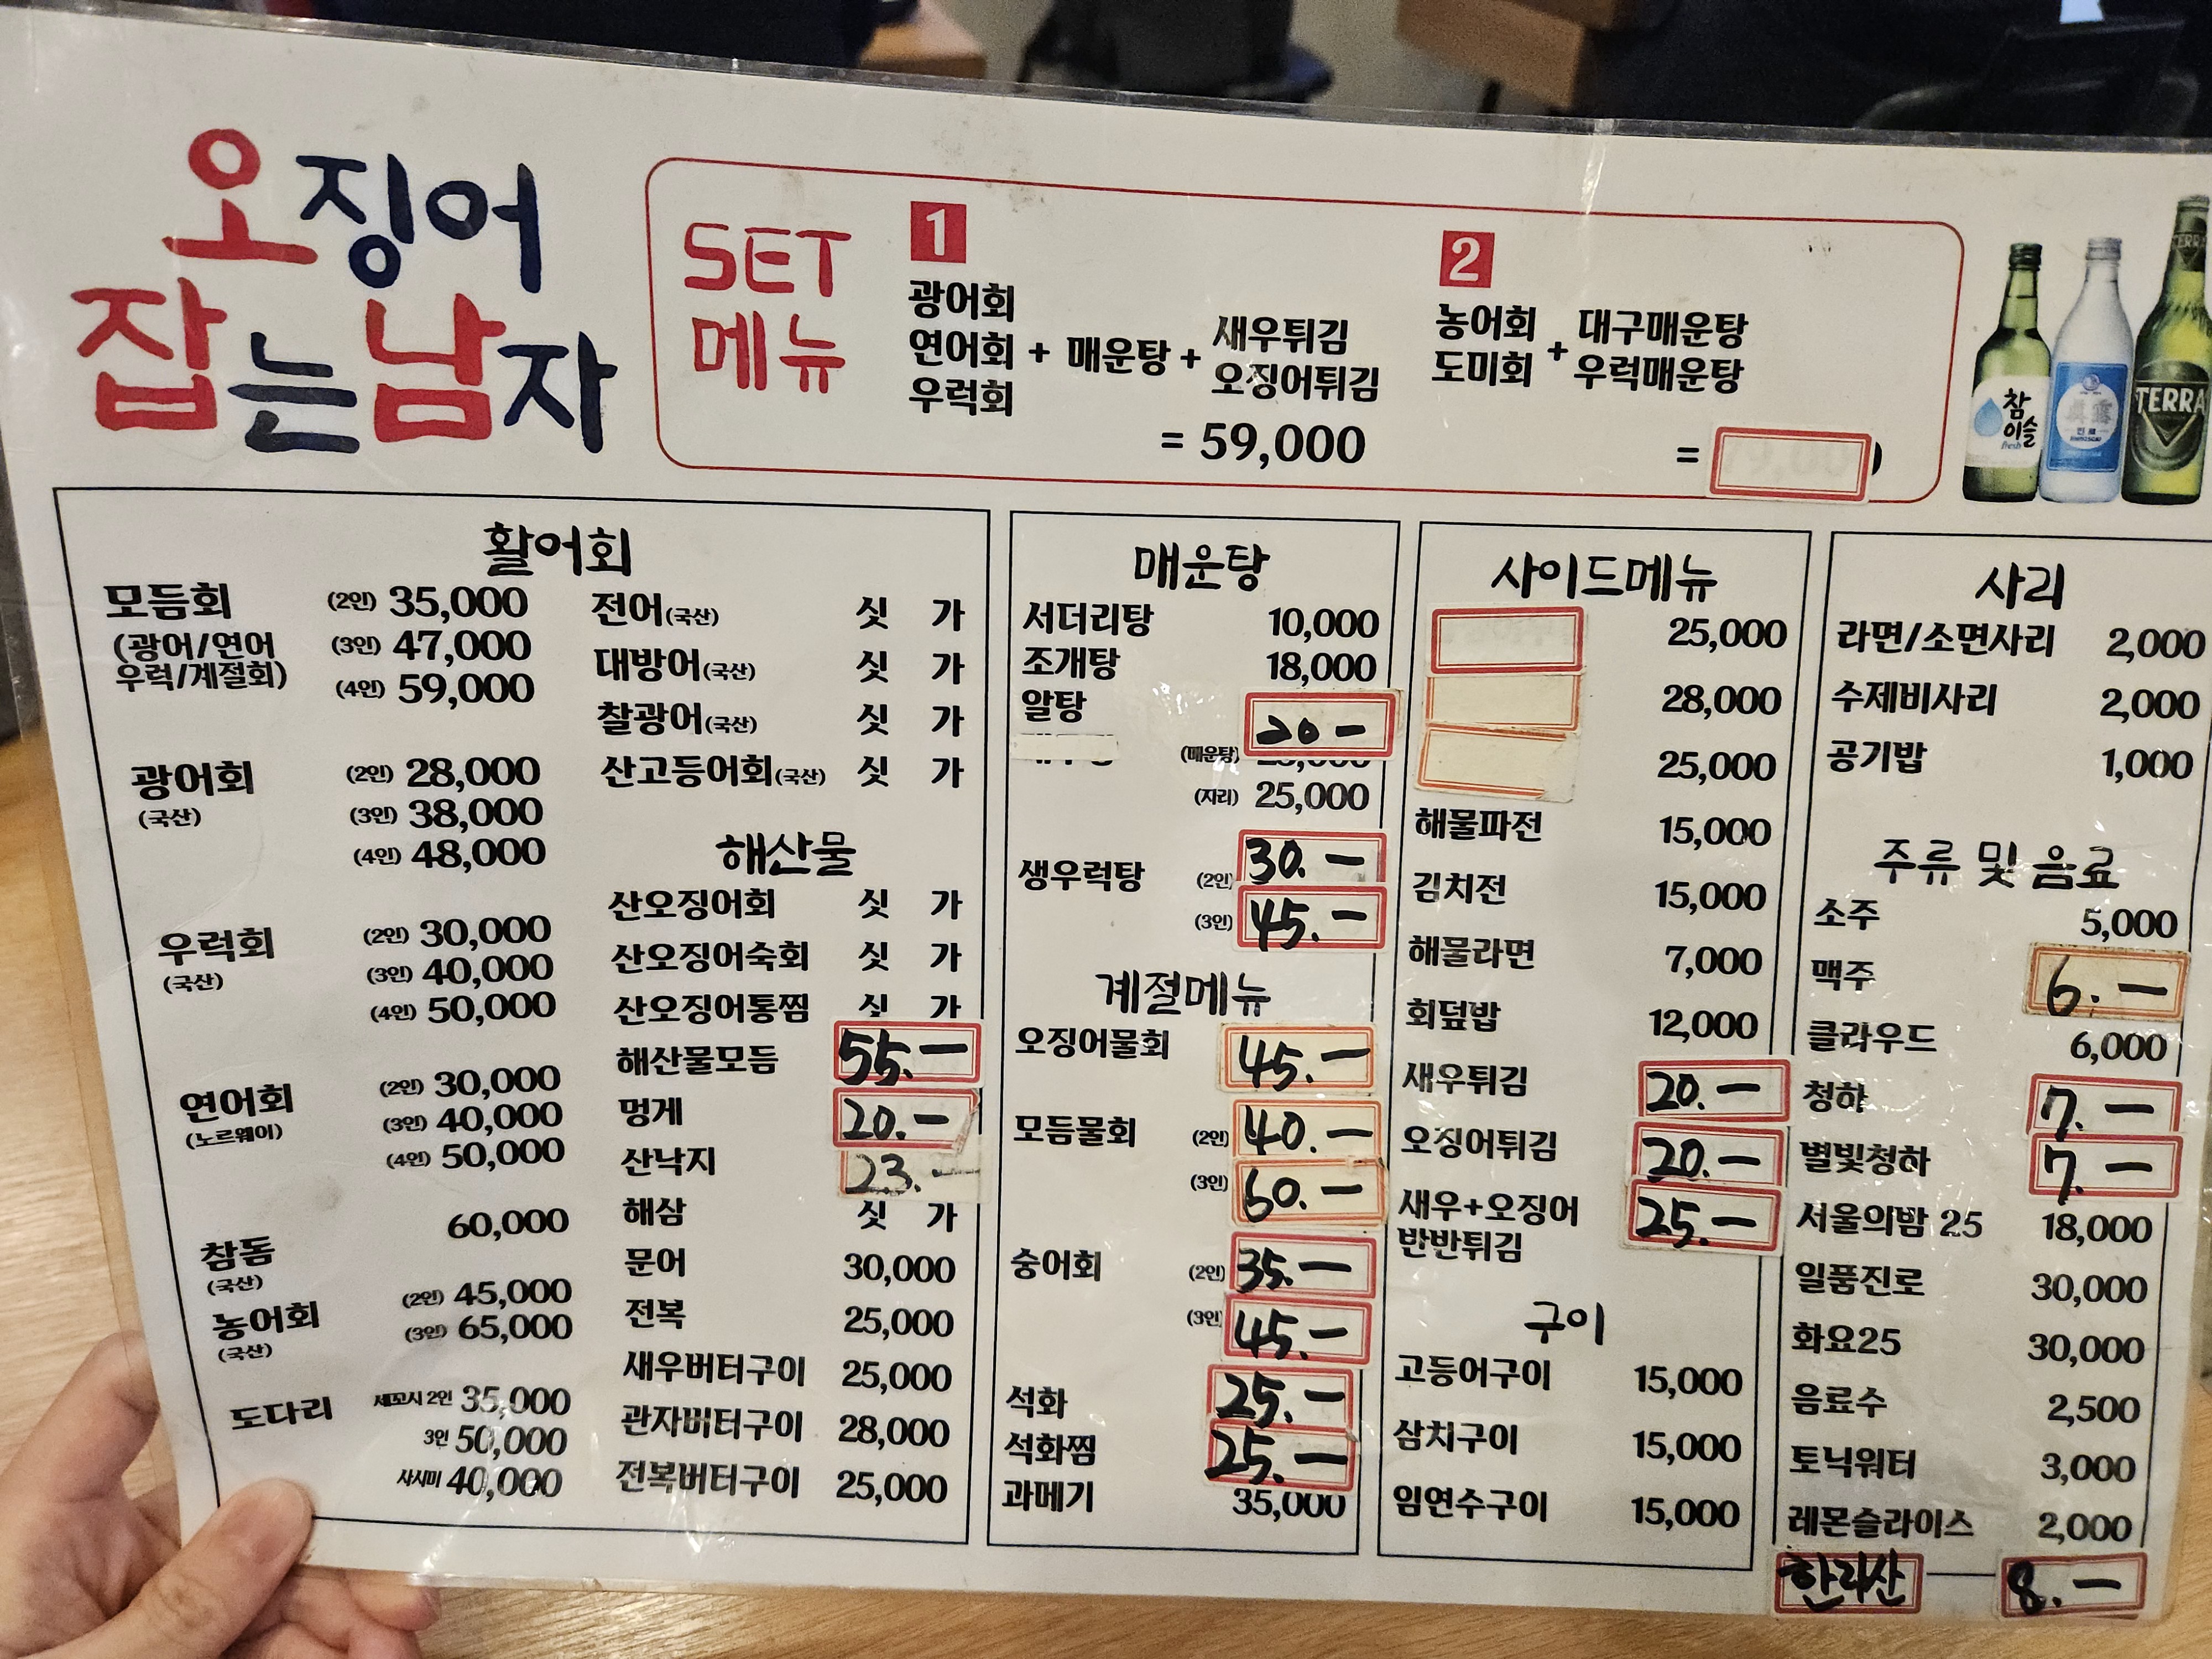 오징어
잡는남자
SET
메뉴
1
광어회
연어회 + 매운탕 + 새우튀김
우럭회
오징어튀김
= 59,000
2
농어회 + 대구매운탕
도미회 우럭매운탕
=
참
이슬
fresh
TERRA
활어회
모듬회 (2인) 35,000
(광어/연어 (3인) 47,000
우럭/계절회) (4인) 59,000
광어회 (2인) 28,000
(국산) (3인) 38,000
(4인) 48,000
우럭회 (2인) 30,000
(국산) (3인) 40,000
(4인) 50,000
연어회 (2인) 30,000
(노르웨이) (3인) 40,000
(4인) 50,000
참돔 60,000
(국산)
농어회 (2인) 45,000
(국산) (3인) 65,000
도다리 세꼬시 2인 35,000
3인 50,000
사시미 40,000
전어(국산) 싯 가
대방어(국산) 싯 가
찰광어(국산) 싯 가
산고등어회(국산) 싯 가
해산물
산오징어회 싯 가
산오징어숙회 싯 가
산오징어통찜 싯 가
해산물모듬 55.-
멍게 20.-
산낙지 23.-
해삼 싯 가
문어 30,000
전복 25,000
새우버터구이 25,000
관자버터구이 28,000
전복버터구이 25,000
매운탕
서더리탕 10,000
조개탕 18,000
알탕 20-
(매운탕)
(지리) 25,000
생우럭탕 (2인) 30.-
(3인) 45.-
계절메뉴
오징어물회 45.-
모듬물회 (2인) 40.-
(3인) 60.-
숭어회 (2인) 35.-
(3인) 45.-
석화 25.-
석화찜 25.-
과메기 35,000
사이드메뉴
25,000
28,000
25,000
해물파전 15,000
김치전 15,000
해물라면 7,000
회덮밥 12,000
새우튀김 20.-
오징어튀김 20.-
새우+오징어 25.-
반반튀김
구이
고등어구이 15,000
삼치구이 15,000
임연수구이 15,000
사리
라면/소면사리 2,000
수제비사리 2,000
공기밥 1,000
주류 및 음료
소주 5,000
맥주 6.-
클라우드 6,000
청하 7.-
별빛청하 7.-
서울의밤 25 18,000
일품진로 30,000
화요25 30,000
음료수 2,500
토닉워터 3,000
레몬슬라이스 2,000
한라산 8.-